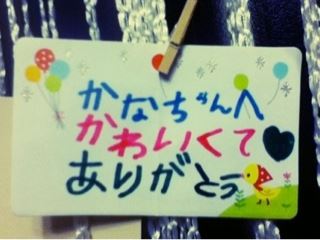 かなちゃんへ
かわいくて♥
ありがとう